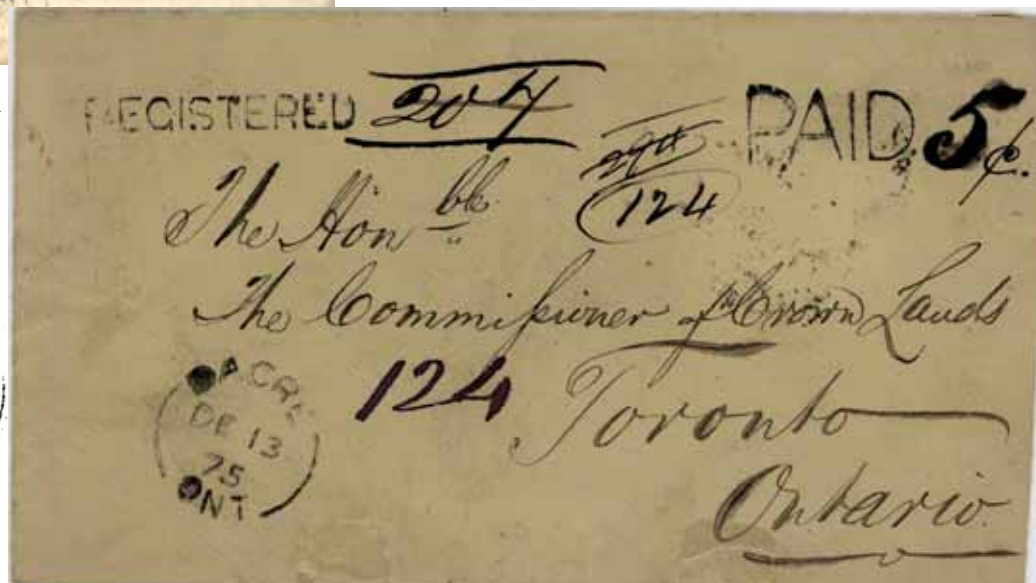 REGISTERED 204 PAID 5¢.
124
The Honble
The Commissioner of Crown Lands
124
Toronto
Ontario.
DACRE
DE 13
75
ONT